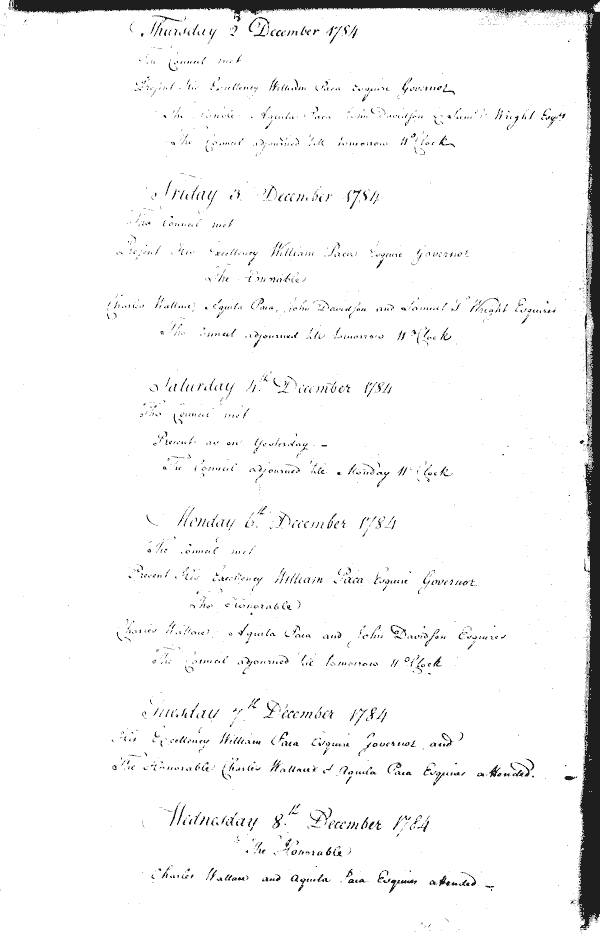 Thursday 2d December 1784
The Council met
Present His Excellency William Paca Esquire Governor
The Honble. Aquila Paca John Davidson & Saml. T. Wright Esqrs
The Council adjourned till tomorrow 11 o'Clock
Friday 3. December 1784
The Council met
Present His Excellency William Paca Esquire Governor
The Honorable
Charles Wallace, Aquila Paca, John Davidson and Samuel T. Wright Esquires
The Council adjourned till tomorrow 11 o'Clock
Saturday 4th December 1784
The Council met
Present as on Yesterday –
The Council adjourned till Monday 11 o'Clock
Monday 6th December 1784
The Council met
Present His Excellency William Paca Esquire Governor
The Honorable
Charles Wallace, Aquila Paca and John Davidson Esquires
The Council adjourned till tomorrow 11 o'Clock
Tuesday 7th December 1784
His Excellency William Paca Esquire Governor and
The Honorable Charles Wallace & Aquila Paca Esquires attended.
Wednesday 8th December 1784
The Honorable
Charles Wallace and Aquila Paca Esquires attended –